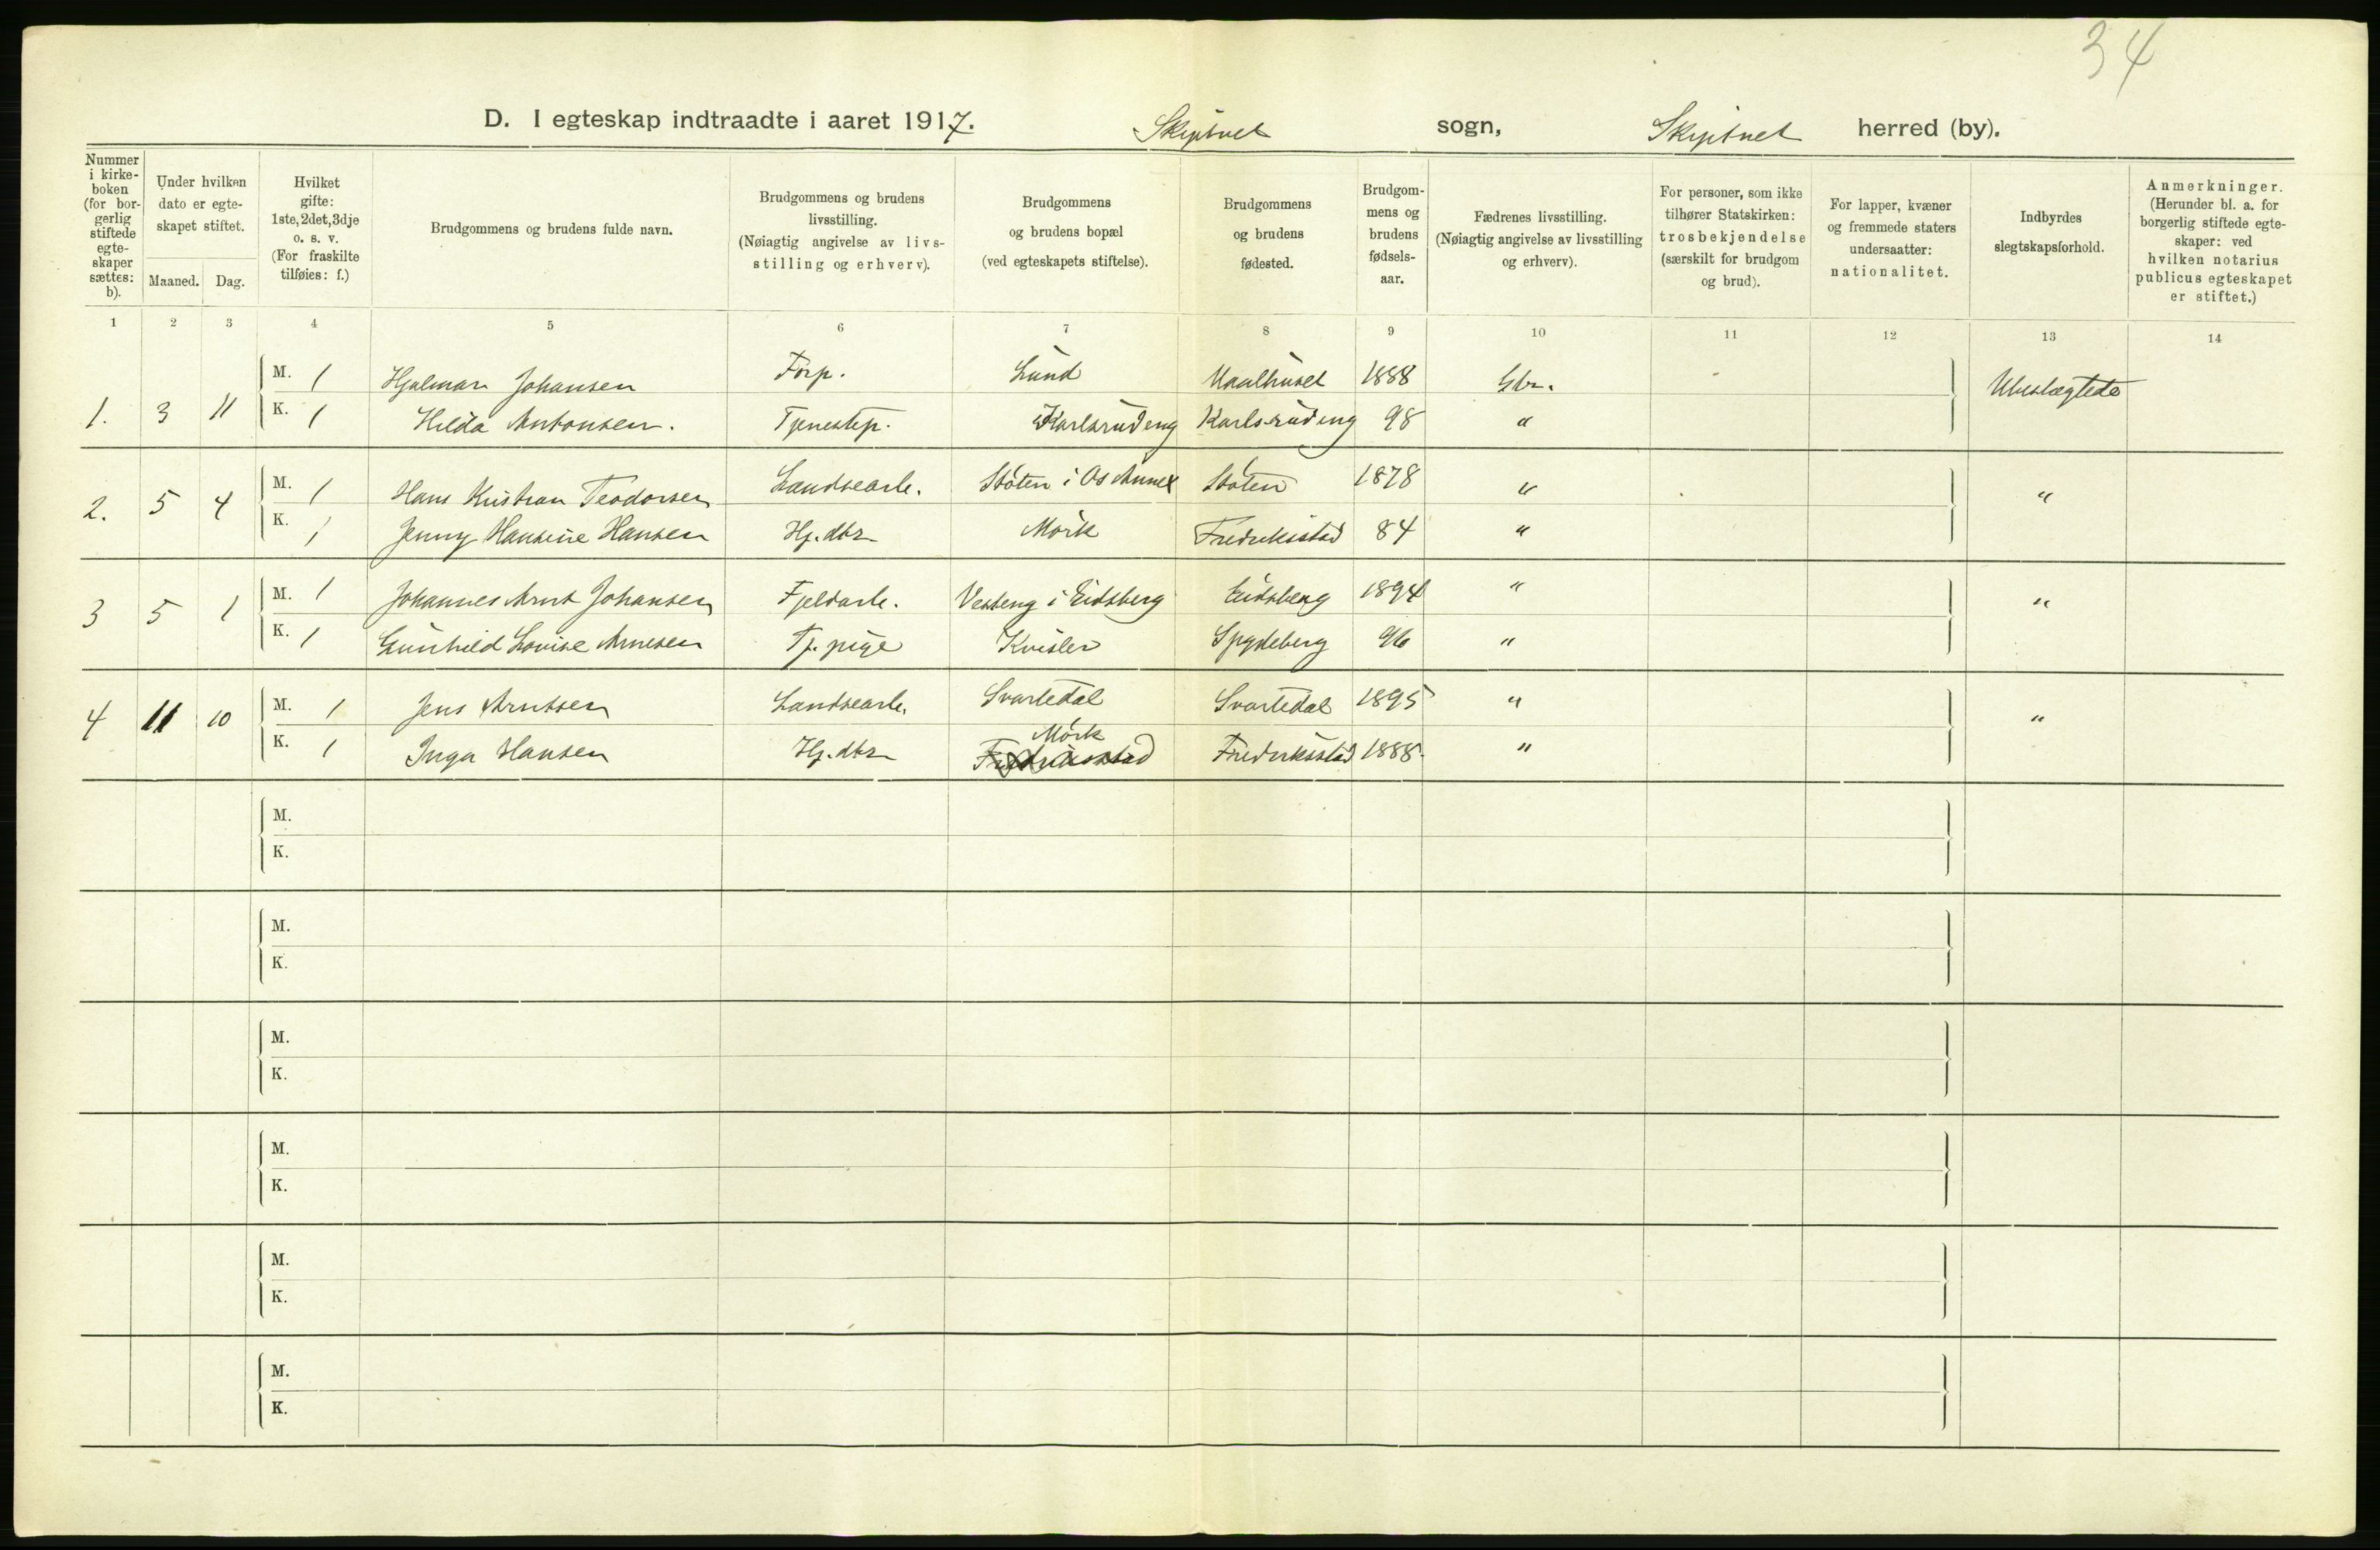 34
D. I egteskap indtraadte i aaret 1917. Skiptvet sogn, Skiptvet herred (by).
Nummer i kirke- boken (for bor- gerlig stiftede egte- skaper sættes: b).
Under hvilken dato er egte- skapet stiftet.
Maaned. Dag.
Hvilket gifte: 1ste, 2det, 3dje o. s. v. (For fraskilte tilføies: f.)
Brudgommens og brudens fulde navn.
Brudgommens og brudens livsstilling. (Nøiagtig angivelse av livs- stilling og erhverv).
Brudgommens og brudens bopæl (ved egteskapets stiftelse).
Brudgommens og brudens fødested.
Brudgom- mens og brudens fødsels- aar.
Fædrenes livsstilling. (Nøiagtig angivelse av livsstilling og erhverv).
For personer, som ikke tilhører Statskirken: trosbekjendelse (særskilt for brudgom og brud).
For lapper, kvæner og fremmede staters undersaatter: nationalitet.
Indbyrdes slegtskapsforhold.
Anmerkninger. (Herunder bl. a. for borgerlig stiftede egte- skaper: ved hvilken notarius publicus egteskapet er stiftet.)
1 2 3 4 5 6 7 8 9 10 11 12 13 14
M. 1 Hjalmar Johansen Forp. Lund Maalhuset 1888 Gbr. Ubeslægtede
1. 3 11 K. 1 Hilda Antonsen. Tjenestep. Karlsrudeng Karlsrudeng 98 "
M. 1 Hans Kristian Teodorsen Landsearb. Støten i Os Annex Støten 1878 " "
2. 5 4 K. 1 Jenny Hansine Hansen Hj. dtr Mørk Fredriksstad 84 "
M. 1 Johannes Arnt Johansen Fjeldarb. Vesteng i Eidsberg Eidsberg 1894 " "
3 5 1 K. 1 Gunhild Lovise Arnesen Tj. pige Kvisler Spydeberg 96 "
M. 1 Jens Arntsen Landsearb. Svartedal Svartedal 1895 " "
4 11 10 K. 1 Inga Hansen Hj. dtr Fredriksstad Mørk Fredriksstad 1888. "
M.
K.
M.
K.
M.
K.
M.
K.
M.
K.
M.
K.